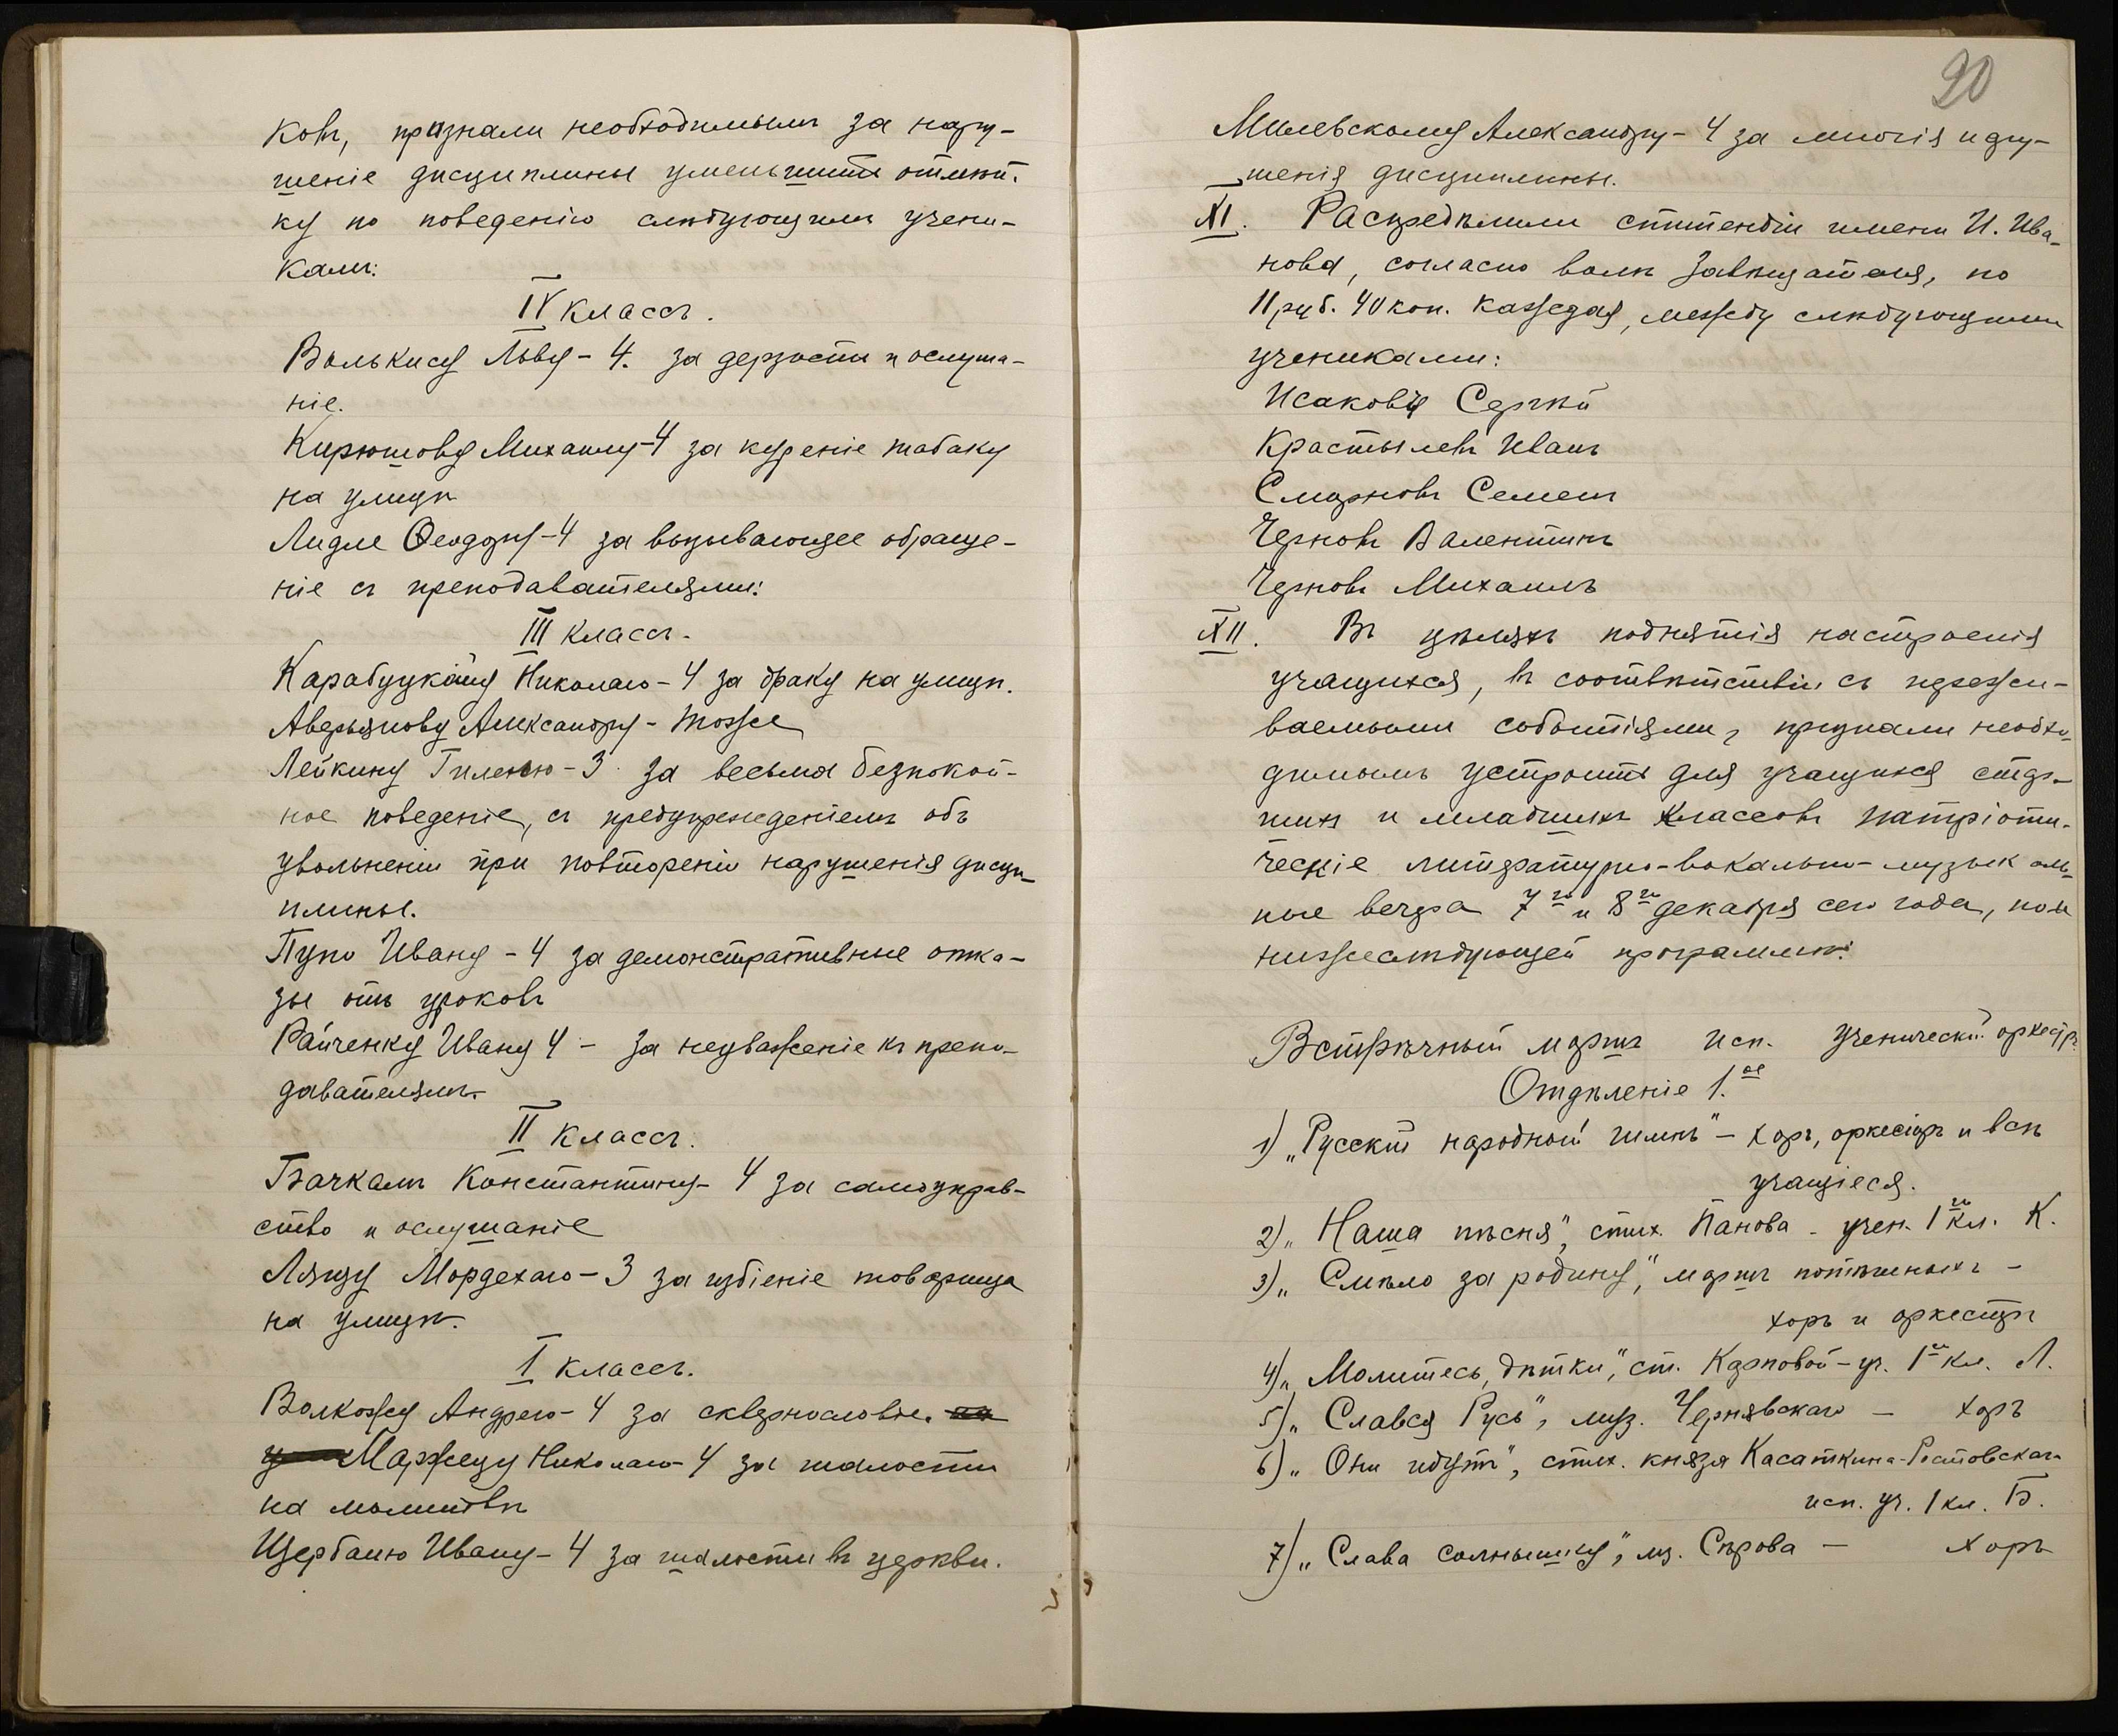 ковъ, признали необходимымъ за нару-
шеніе дисциплины уменьшить отмѣт-
ку по поведенію слѣдующимъ учени-
камъ:
IV классъ.
Волькису Льву - 4. за дерзости и ослуша-
ніе.
Кирюшову Михаилу - 4 за куреніе табаку
на улицѣ
Лидле Ѳеодору - 4 за вызывающее обраще-
ніе съ преподавателями:
III классъ.
Карабуцкому Николаю - 4 за драку на улицѣ.
Аверьянову Александру - тоже
Лейкину Гилелю - 3 за весьма безпокой-
ное поведеніе, съ предупрежденіемъ объ
увольненіи при повтореніи нарушенія дисци-
плины.
Пупо Ивану - 4 за демонстративные отка-
зы отъ уроковъ
Райченку Ивану 4 - за неуваженіе къ препо-
давателямъ.
II классъ.
Бачкалъ Константину - 4 за самоуправ-
ство и ослушаніе
Ляцу Мордехаю - 3 за избіеніе товарища
на улицѣ.
I классъ.
Волкожу Андрею - 4 за сквернословіе.
Маржецу Николаю - 4 за шалости
на молитвѣ
Щербаню Ивану - 4 за шалости въ церкви.
20
Милевскому Александру - 4 за многія нару-
шенія дисциплины.
XI. Распредѣлили стипендіи имени И. Ива-
нова, согласно воли Завѣщателя, по
11 руб. 40 коп. каждая, между слѣдующими
учениками:
Исаковъ Сергѣй
Крастылевъ Иванъ
Смирновъ Семенъ
Черновъ Валентинъ
Черновъ Михаилъ
XII. Въ цѣляхъ поднятія настроенія
учащихся, въ соотвѣтствіи съ пережи-
ваемыми событіями, признали необхо-
димымъ устроить для учащихся стар-
шихъ и младшихъ классовъ патріоти-
ческіе литературно-вокально-музыкаль-
ные вечера 7го и 8го декабря сего года, по
нижеслѣдующей программѣ:
Встрѣчный маршъ исп. ученическій оркестръ
Отдѣленіе 1.ое
1) „Русскій народный гимнъ" - хоръ, оркестръ и всѣ
учащіеся.
2) „Наша пѣсня", стих. Панова - учен. 1го кл. К.
3) „Смѣло за родину", маршъ потѣшныхъ -
хоръ и оркестръ
4) „Молитесь, дѣтки", ст. Карповой - уч. 1го кл. Л.
5) „Славься Русь", муз. Чернявскаго - хоръ
6) „Они идутъ", стих. князя Касаткина-Ростовскаго
исп. уч. 1 кл. Б.
7) „Слава солнышку", муз. Сѣрова - хоръ